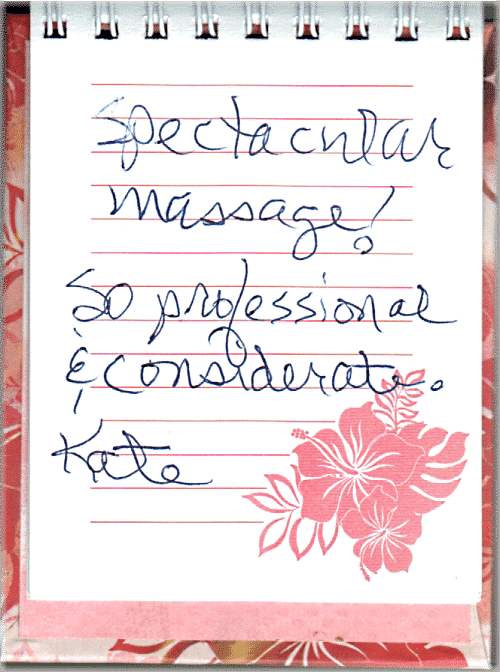 Spectacular
massage!
So professional
& considerate.
Kate